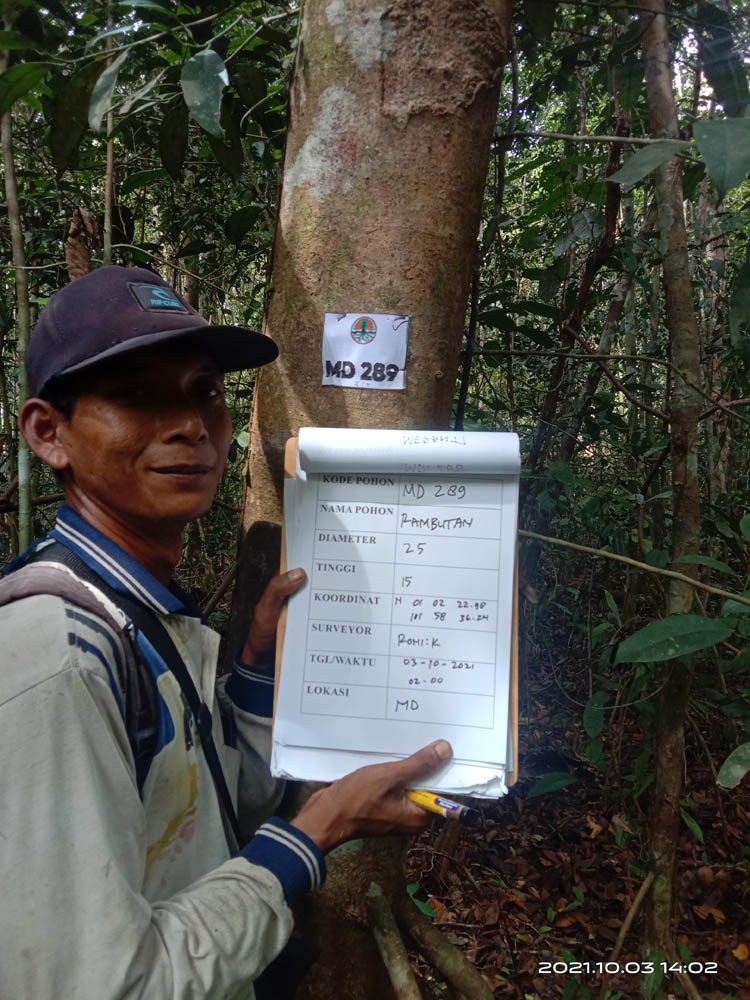 RIP CURL
MD 289
KODE POHON MD 289
NAMA POHON RAMBUTAN
DIAMETER 25
TINGGI 15
KOORDINAT N 01 02 22.90
101 58 36.24
SURVEYOR ROMI:K
TGL/WAKTU 03-10-2021
02.00
LOKASI MD
2021.10.03 14:02